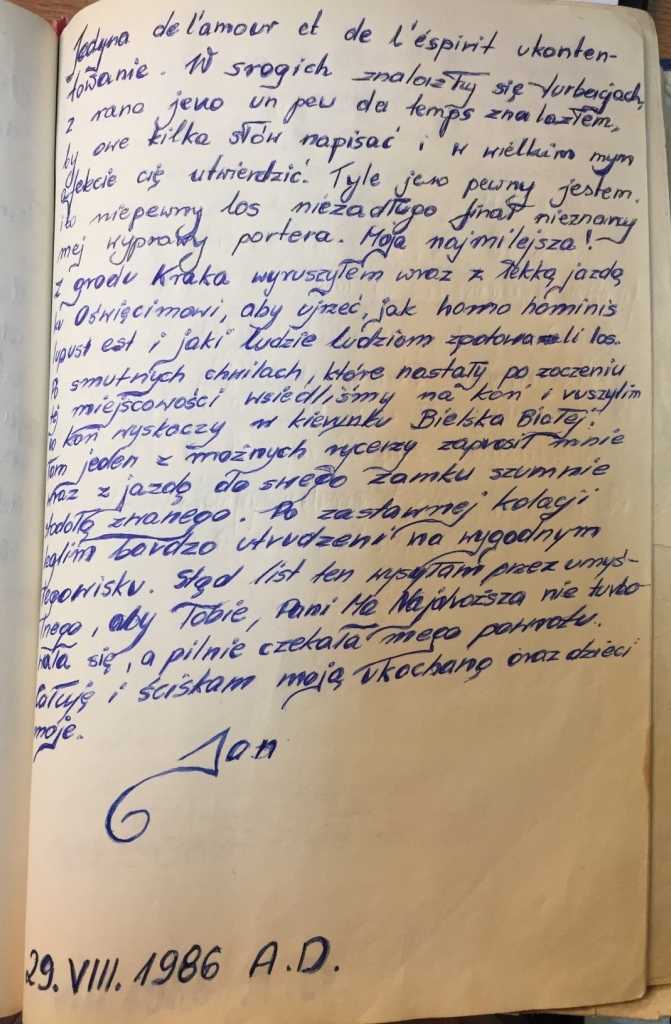 Jedyna de l'amour et de l'éspirit ukonten-
towanie. W srogich znalazłży się turbacjach,
z rana jeno un peu da temps znalazłem,
by owe kilka słów napisać i w wielkim mym
afekcie cię utwierdzić. Tyle jeno pewny jestem.
ile niepewny los niezadługo finał nieznanny
mej wyprawy portera. Moja najmilejsza!
z grodu Kraka wyruszyłem wraz z lekką jazdą
ku Oświęcimowi, aby ujrzeć, jak homo hominis
lupust est i jaki ludzie ludziom zgotowali los.
Po smutnych chwilach, które nastały po zoczeniu
tej miejscowości wsiedliśmy na koń i ruszylim
co koń wyskoczy w kierunku Bielska Białej!
Tam jeden z możnych rycerzy zaprosił mnie
wraz z jazdą do swego zamku szumnie
stodołą znanego. Po zastawnej kolacji
leglim bardzo utrudzeni na wygodnym
legowisku. Stąd list ten wysyłam przez umyś-
lnego, aby Tobie, Pani Ma Najdroższa nie turbo-
wała się, a pilnie czekała mego powrotu.
Całuję i ściskam moją ukochaną oraz dzieci
moje.
Jan
29. VIII. 1986 A.D.